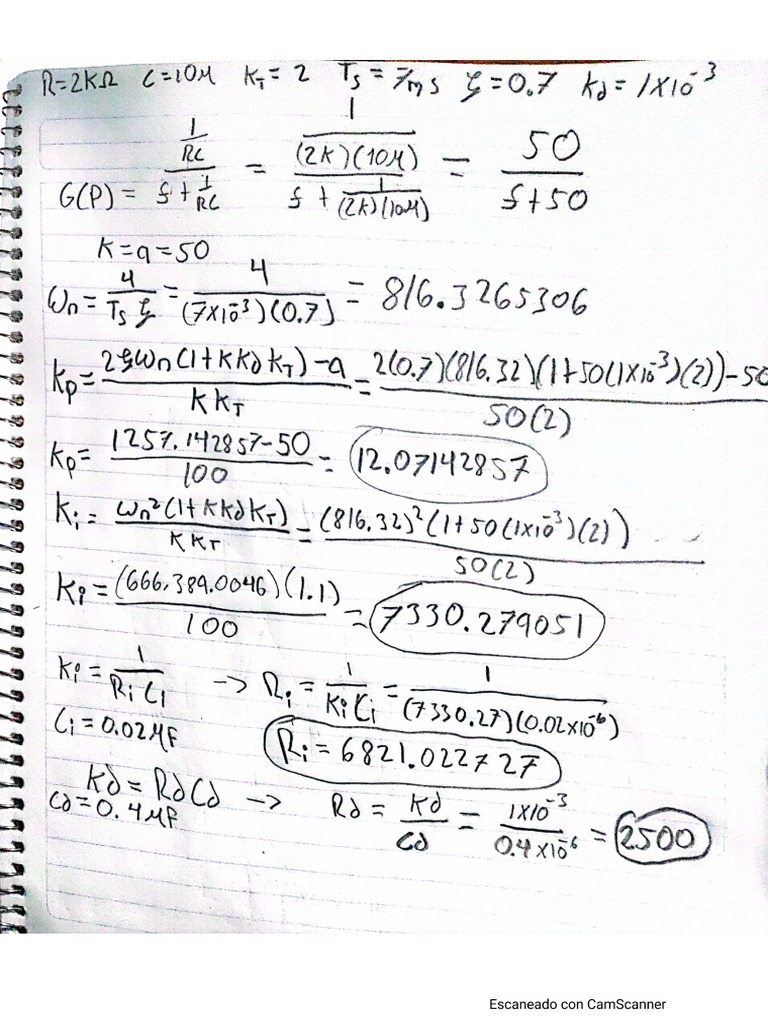 R=2KΩ C=10μ K_T=2 Ts=7ms ζ=0.7 kd=1×10^-3
G(P) = (1/RC)/(s+1/RC) = (1/((2k)(10μ)))/(s+1/((2k)(10μ))) = 50/(s+50)
K=a=50
ωn = 4/(Ts ζ) = 4/((7×10^-3)(0.7)) = 816.3265306
Kp = (2ζωn(1+KKdK_T)-a)/(KK_T) = (2(0.7)(816.32)(1+50(1×10^-3)(2))-50)/(50(2))
Kp = (1257.142857-50)/100 = 12.07142857
Ki = (ωn²(1+KKdK_T))/(KK_T) = ((816.32)²(1+50(1×10^-3)(2)))/(50(2))
Ki = ((666,389.0046)(1.1))/100 = 7330.279051
Ki = 1/(Ri Ci) -> Ri = 1/(Ki Ci) = 1/((7330.27)(0.02×10^-6))
Ci = 0.02μF
Ri = 6821.022727
Kd = RdCd -> Rd = Kd/Cd = (1×10^-3)/(0.4×10^-6) = 2500
Cd = 0.4μF
Escaneado con CamScanner